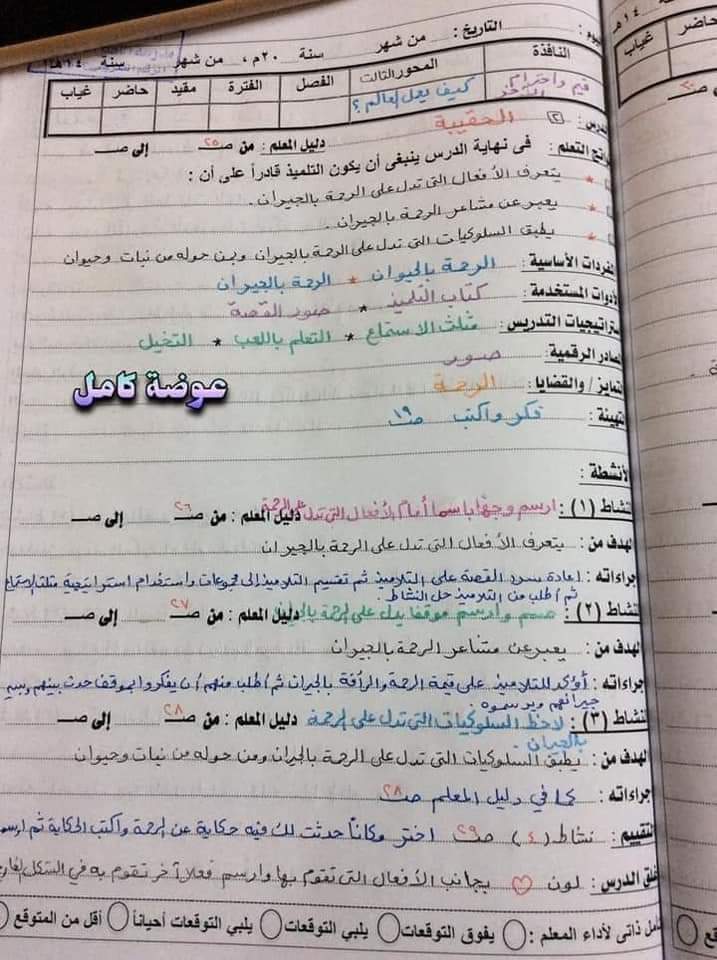 التاريخ : من شهر سنة ٢٠م ، من شهر سنة ١٤هـ
النافذة المحور الثالث الفصل الفترة مقيد حاضر غياب
قيم واحترام الآخر كيف يعمل العالم ؟
الدرس : (٢) الحقيبة
دليل المعلم : من صـ ٢٥ إلى صـ
نواتج التعلم : فى نهاية الدرس ينبغى أن يكون التلميذ قادراً على أن :
* يتعرف الأفعال التى تدل على الرحمة بالجيران .
* يعبر عن مشاعر الرحمة بالجيران .
* يطبق السلوكيات التى تدل على الرحمة بالجيران ومن حوله من نبات وحيوان
المفردات الأساسية : الرحمة بالحيوان * الرحمة بالجيران
الأدوات المستخدمة : كتاب التلميذ * صور القصة
استراتيجيات التدريس : مثلث الاستماع * التعلم باللعب * التخيل
المصادر الرقمية : صور
التمايز / والقضايا : الرحمة
عوضة كامل
التهيئة : فكر واكتب صـ ١٩
الأنشطة :
نشاط (١) : ارسم وجها باسما أمام الأفعال التى تدل على الرحمة دليل المعلم : من صـ ٢٦ إلى صـ
الهدف من : يتعرف الأفعال التى تدل على الرحمة بالجيران
إجراءاته : إعادة سرد القصة على التلاميذ ثم تقسيم التلاميذ إلى مجموعات واستخدام استراتيجية مثلث الاستماع
ثم أطلب من التلاميذ حل النشاط .
نشاط (٢) : صمم وارسم موقفا يدل على الرحمة بالجيران دليل المعلم : من صـ ٢٧ إلى صـ
الهدف من : يعبر عن مشاعر الرحمة بالجيران
إجراءاته : أؤكد للتلاميذ على قيمة الرحمة والرأفة بالجيران ثم أطلب منهم أن يفكروا بموقف حدث بينهم وبين
جيرانهم ويرسموه
نشاط (٣) : لاحظ السلوكيات التى تدل على الرحمة دليل المعلم : من صـ ٢٨ إلى صـ
بالجيران .
الهدف من : يطبق السلوكيات التى تدل على الرحمة بالجيران ومن حوله من نبات وحيوان
إجراءاته : كما في دليل المعلم صـ ٢٨
التقييم : نشاط (٤) صـ ٢٩ اختر مكاناً حدثت لك فيه حكاية عن الرحمة واكتب الحكاية ثم ارسم
غلق الدرس : لون ♡ بجانب الأفعال التى تقوم بها وارسم فعلا آخر تقوم به في الشكل الفارغ
تأمل ذاتى لأداء المعلم : يفوق التوقعات يلبي التوقعات يلبي التوقعات أحياناً أقل من المتوقع
حاضر غياب